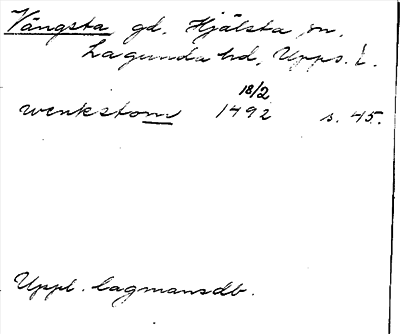 Vängsta gd. Hjälsta sn.
Lagunda hd, Upps. l.
18/2
wenkstom 1492 s. 45.
Uppl. lagmansdb.